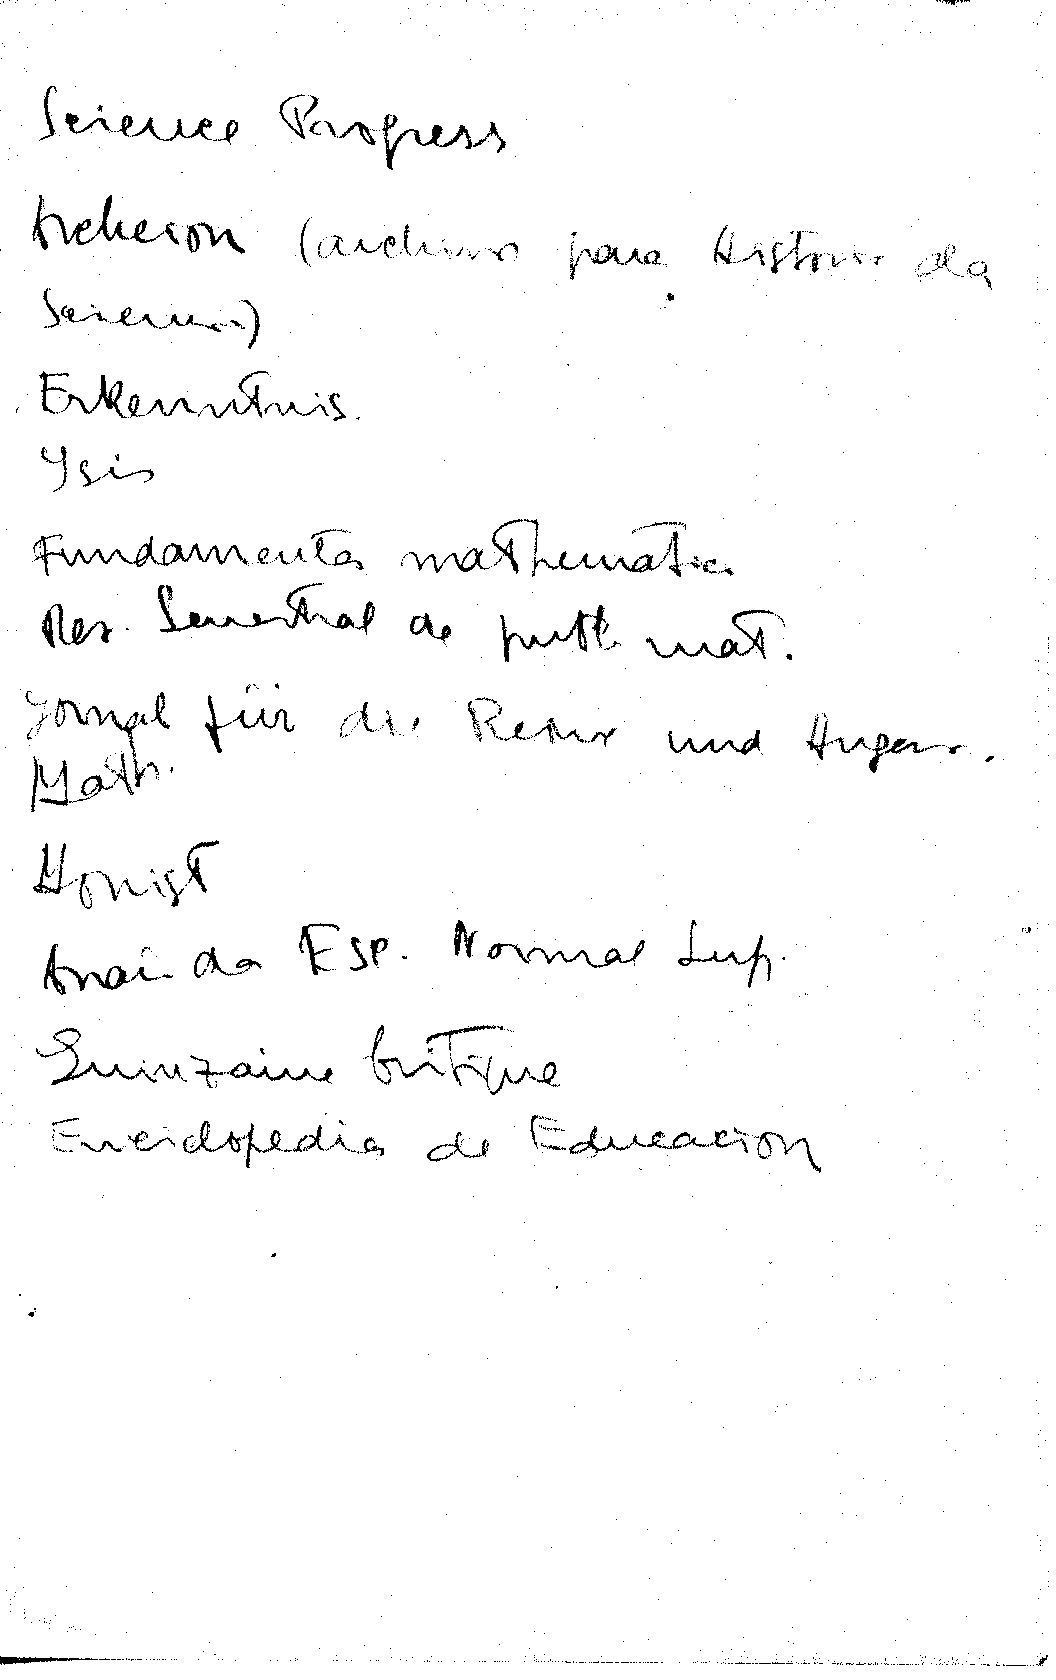 Science Progress
Archeion (archivos para Historia da
Sciencia)
Erkenntnis.
Ysis
Fundamenta mathematica
Rev. Semestral de publ. mat.
Jornal für die Reine und Angew.
Math.
Monist
Anais da Esc. Normal Sup.
Quinzaine Critique
Enciclopedia de Educacion